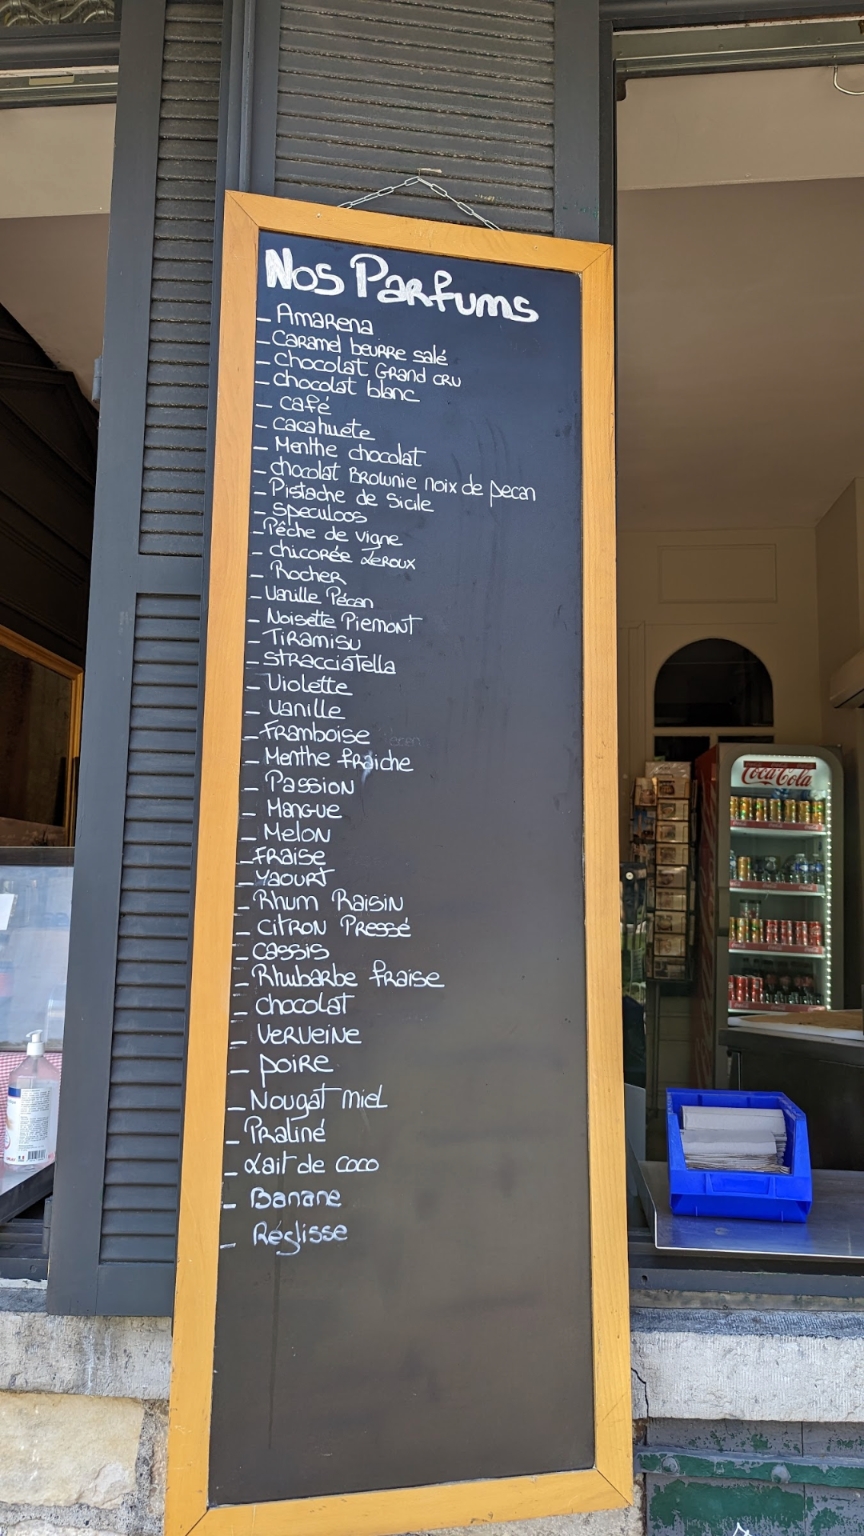 Nos Parfums
- Amarena
- Caramel beurre salé
- Chocolat Grand cru
- chocolat blanc
- café
- cacahuète
- Menthe chocolat
- chocolat Brownie noix de pecan
- Pistache de Sicile
- speculoos
- Pêche de vigne
- chicorée Leroux
- Rocher
- Vanille Pécan
- Noisette Piemont
- Tiramisu
- stracciatella
- Violette
- vanille
- Framboise
- Menthe fraiche
- Passion
- Mangue
- Melon
- Fraise
- Yaourt
- Rhum Raisin
- citron Pressé
- cassis
- Rhubarbe fraise
- chocolat
- Verveine
- poire
- Nougat miel
- Praliné
- Lait de coco
- Banane
- Réglisse
Coca-Cola